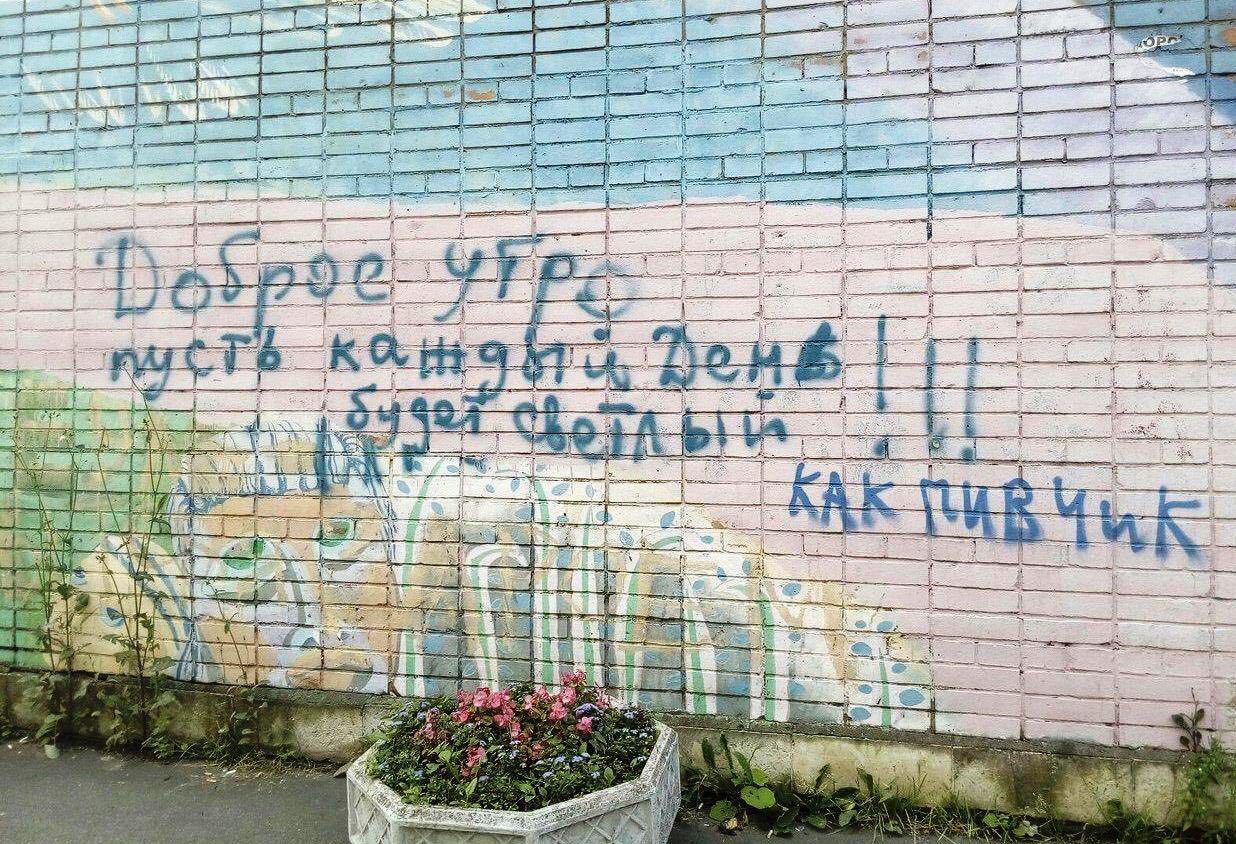 Доброе утро
пусть каждый День!!!
будет светлый
как пивчик